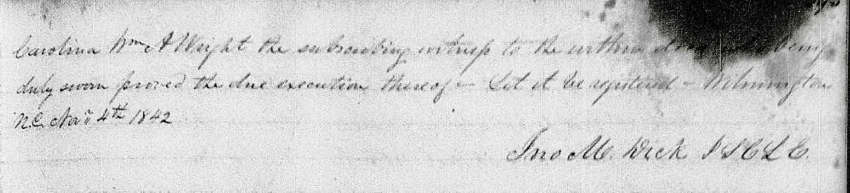 Carolina Wm A Wright the subscribing witness to the within deed being
duly sworn proved the due execution thereof – Let it be registered – Wilmington
N.C. Novr 4th 1842
Jno M. Dick J S C L E.